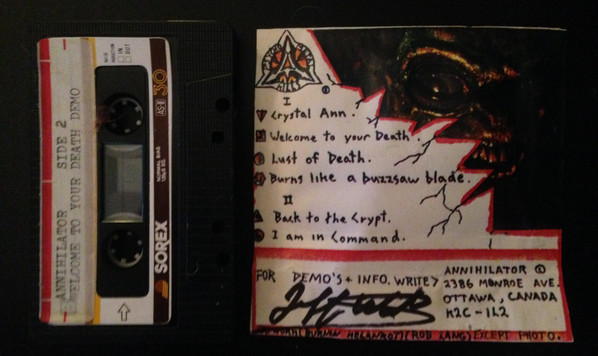 ANNIHILATOR SIDE 2
WELCOME TO YOUR DEATH DEMO
IN
OUT
30
AS-II
NORMAL BIAS
SOREX
I
Crystal Ann.
Welcome to your Death.
Lust of Death.
Burns like a buzzsaw blade.
II
Back to the Crypt.
I am in Command.
FOR DEMO'S + INFO. WRITE?
ANNIHILATOR ©
2386 MONROE AVE.
OTTAWA, CANADA
K2C-1L2
ROB LANG) EXCEPT PHOTO.